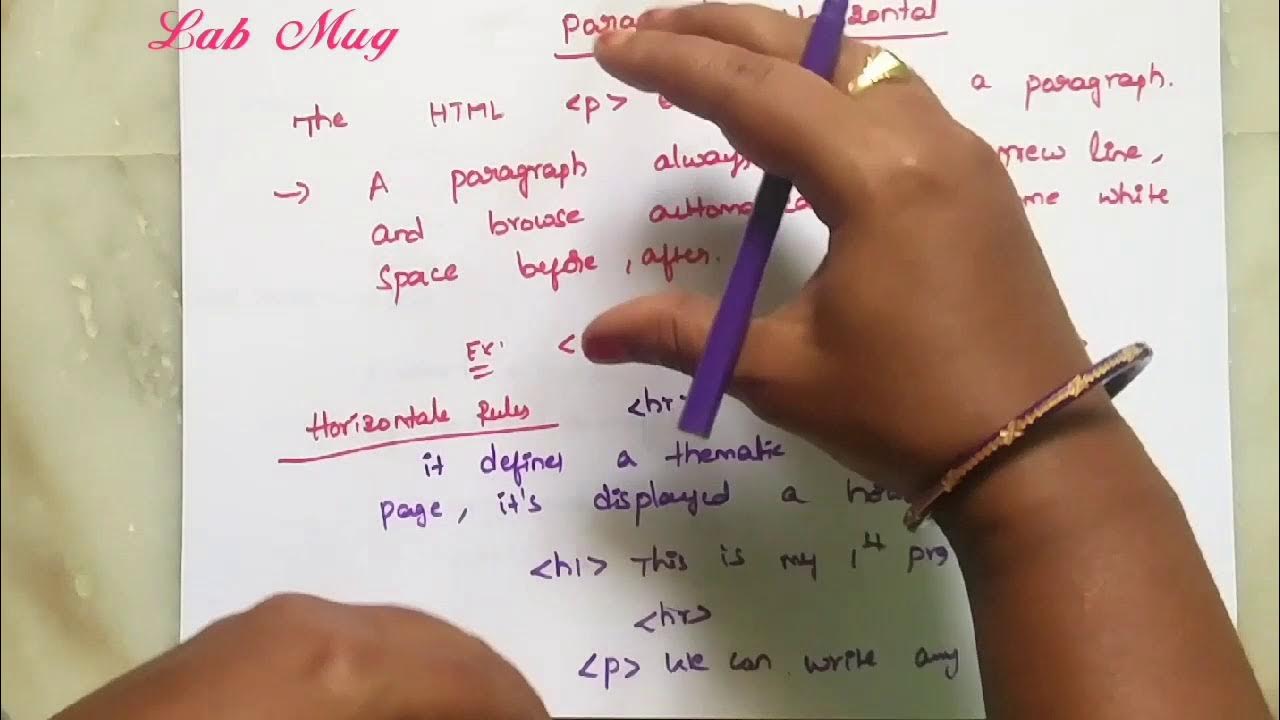 Lab Mug
The HTML <p> a paragraph.
→ A paragraph always new line,
and browse white
space before, after.
Ex: <
Horizontale Rules <hr>
it defines a thematic
page, it's displayed a
<h1> This is my 1st
<hr>
<p> We can write any